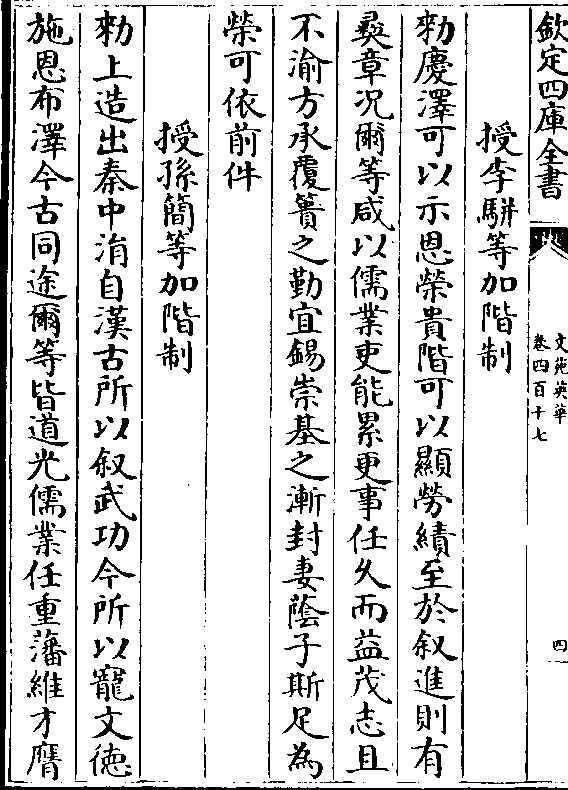 欽定四庫全書
文苑英華
卷四百十七
四
授李駢等加階制
勑慶澤可以示恩榮貴階可以顯勞績至於叙進則有
彛章况爾等咸以儒業吏能累更事任久而益茂志且
不渝方承覆簣之勤宜錫崇基之漸封妻䕃子斯足為
榮可依前件
授孫簡等加階制
勑上造出秦中涓自漢古所以叙武功今所以寵文徳
施恩布澤今古同途爾等皆道光儒業任重藩維才膺